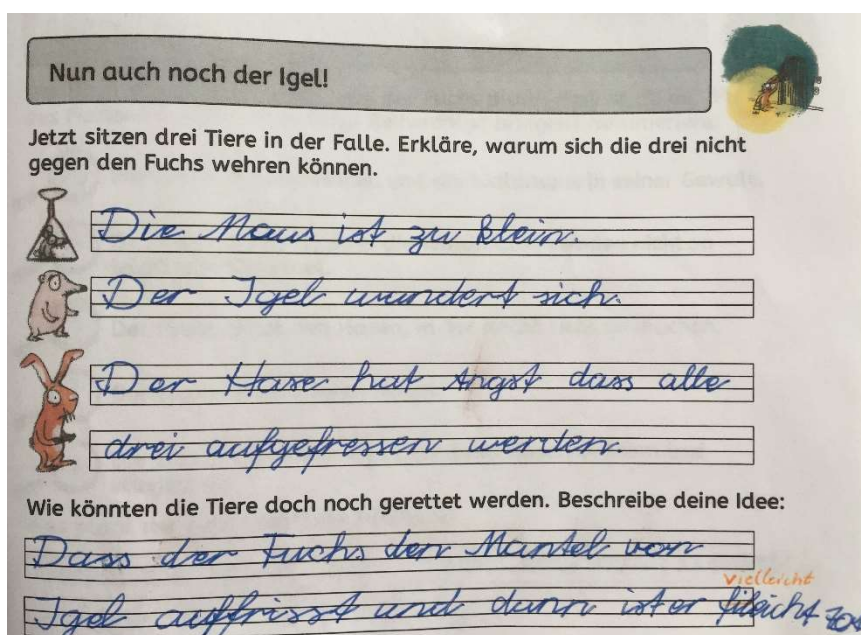 Nun auch noch der Igel!
Jetzt sitzen drei Tiere in der Falle. Erkläre, warum sich die drei nicht
gegen den Fuchs wehren können.
Die Maus ist zu klein.
Der Igel wundert sich.
Der Hase hat Angst dass alle
drei aufgefressen werden.
Wie könnten die Tiere doch noch gerettet werden. Beschreibe deine Idee:
Dass der Fuchs den Mantel von
vielleicht
Igel auffrisst und dann ist er fileicht